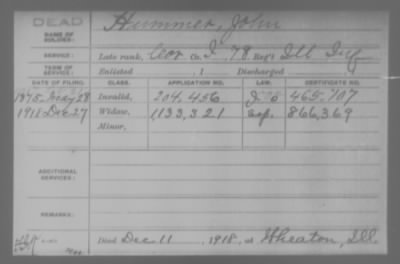 DEAD
NAME OF SOLDIER: Hummer, John
SERVICE: Late rank, Cor Co. I, 78 Reg't Ill Inf
TERM OF SERVICE: Enlisted , 1 Discharged
DATE OF FILING. CLASS. APPLICATION NO. LAW. CERTIFICATE NO.
1875 May 28 Invalid, 204,456 465,707
1918 Dec 27 Widow, 1,133,321 866,369
Minor,
ADDITIONAL SERVICES:
REMARKS:
Died Dec. 11, 1918, at Wheaton, Ill.